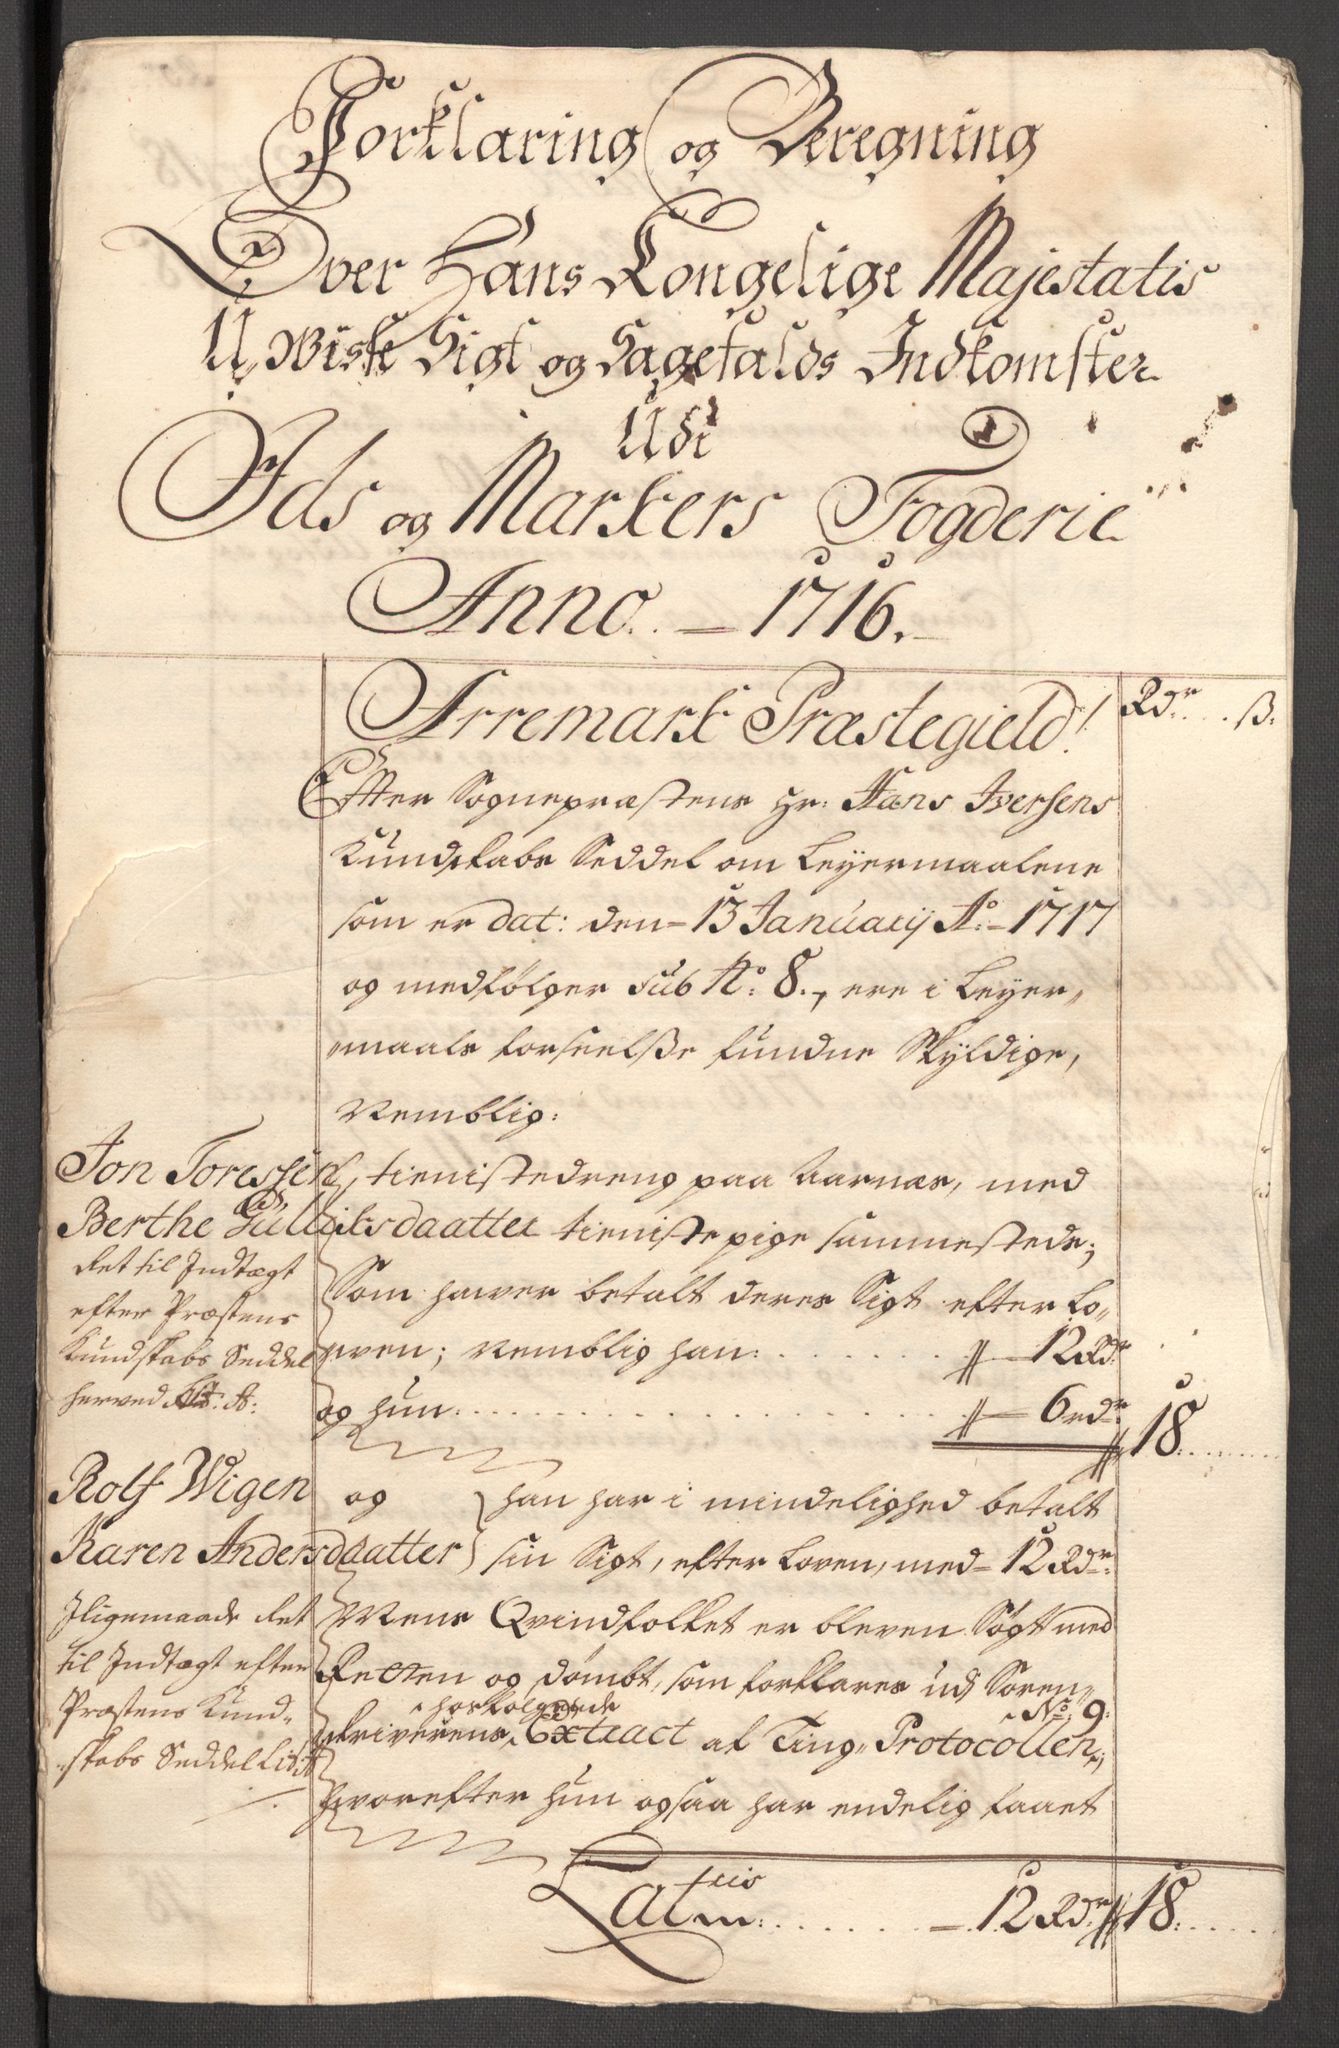 Forklaring og Beregning
Over Hans Kongelige Majestatis
U-Wiske Sigt og Sagefalds Indkomster
Udi
Ids og Markers Fogderie
Anno. 1716.
Arremark Præstegield! Rdr ß:
Efter Sognepræstens Hr: Hans Iversens
Kundskabs Seddel om Leyermaalene
som er dat: den 13 January Ao 1717
og medfølger sub No: 8., ere i Leyer-
maals forseelsse fundne Skyldige,
Nemblig:
Jon Toressen, tienistedreng paa Aarnæs, med
Berthe Gulliksdaatter tienistepige sammesteds;
Som hawer betalt deres Sigt efter Lo-
wen; Nemblig han: 12 Rdr
og hun: 6 rdr 18
det til Indtægt
efter Præstens
Kundskabs Seddel
herved Lit: A:
Rolf Wigen og han har i mindelighed betalt
Karen Andersdaatter sin Sigt, efter Loven, med 12 Rdr:
Mens Qvindfolket er bleven Søgt med
Retten og dømbt, som forklares udj Soren-
skriverens hosfølgende Extract af Ting-Protocollen No: 9.
hvorefter hun ogsaa har endelig faaet
Iligemaade det
til Indtægt efter
Præstens Kund-
skabs Seddel Lit A
Lateris 12 Rdr 18